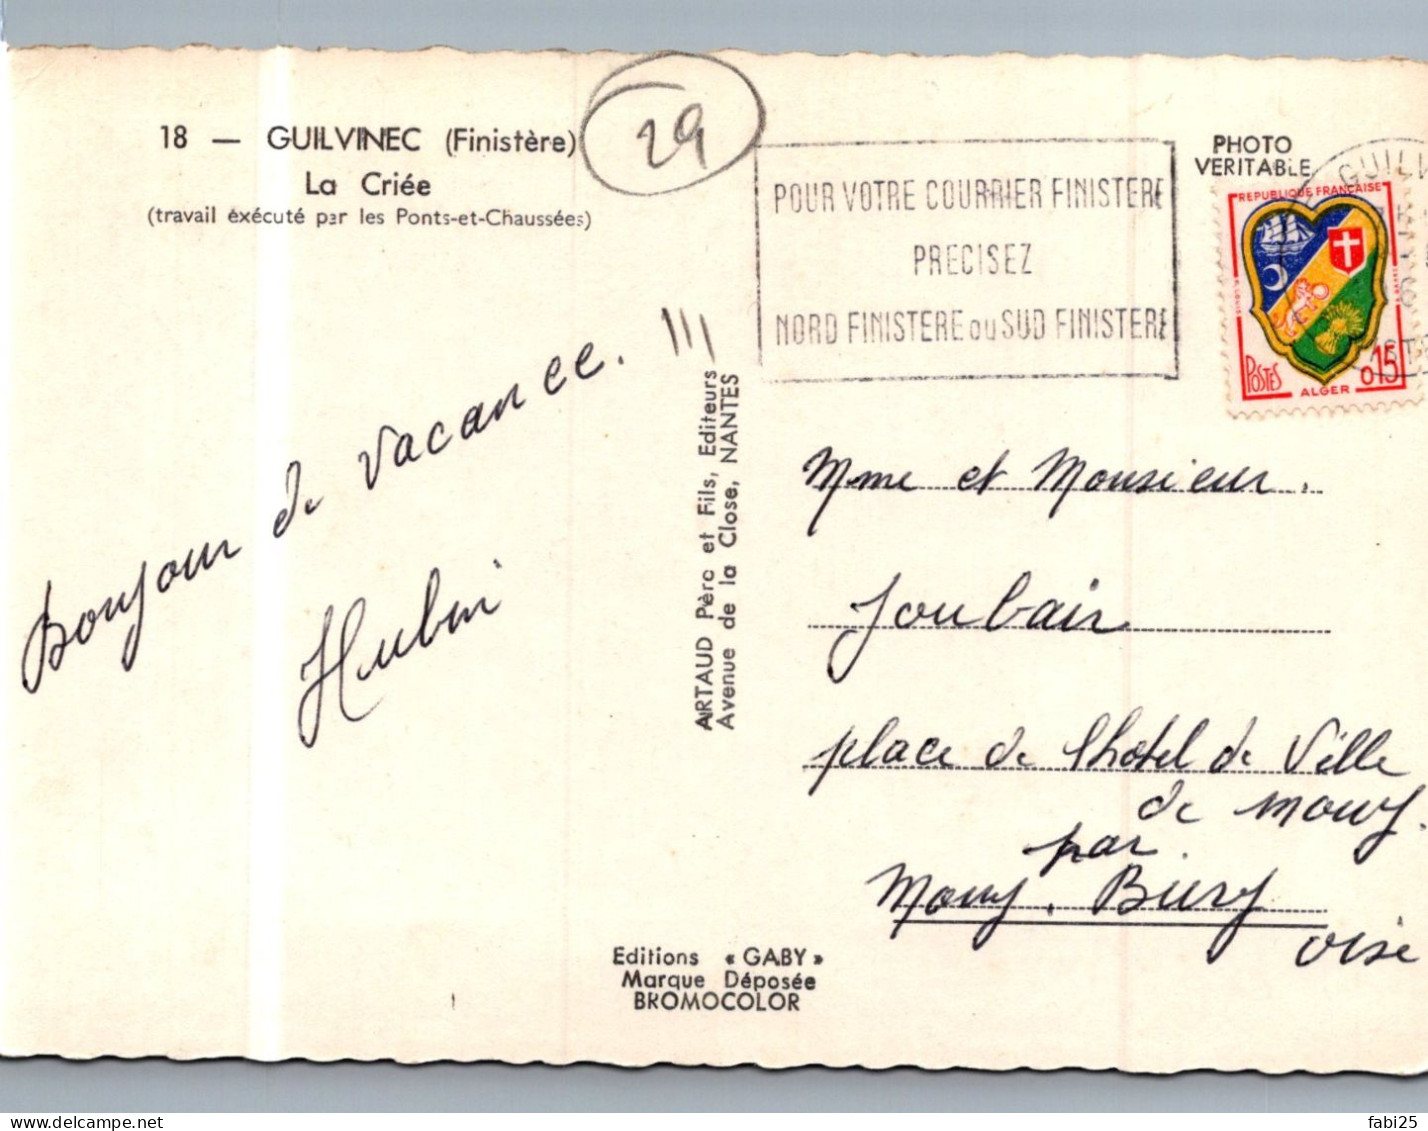 18 — GUILVINEC (Finistère)
La Criée
(travail éxécuté par les Ponts-et-Chaussées)
29
POUR VOTRE COURRIER FINISTERE
PRECISEZ
NORD FINISTERE ou SUD FINISTERE
PHOTO
VERITABLE
GUILV
REPUBLIQUE FRANÇAISE
POSTES
ALGER
0,15
Bonjour de vacance.
ARTAUD Père et Fils, Editeurs
Avenue de la Close, NANTES
Mme et Monsieur.
Joubair
place de lhotel de Ville
de mouy.
par.
Mouy. Bury
oise
Editions « GABY »
Marque Déposée
BROMOCOLOR
delcampe.net
fabi25